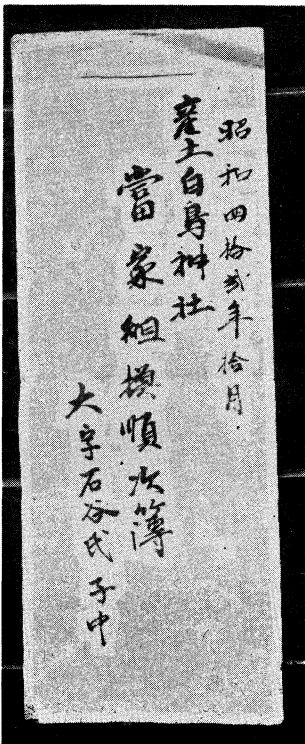 昭和四拾弐年拾月
産土白鳥神社
當家組模順次簿
大字石谷氏子中